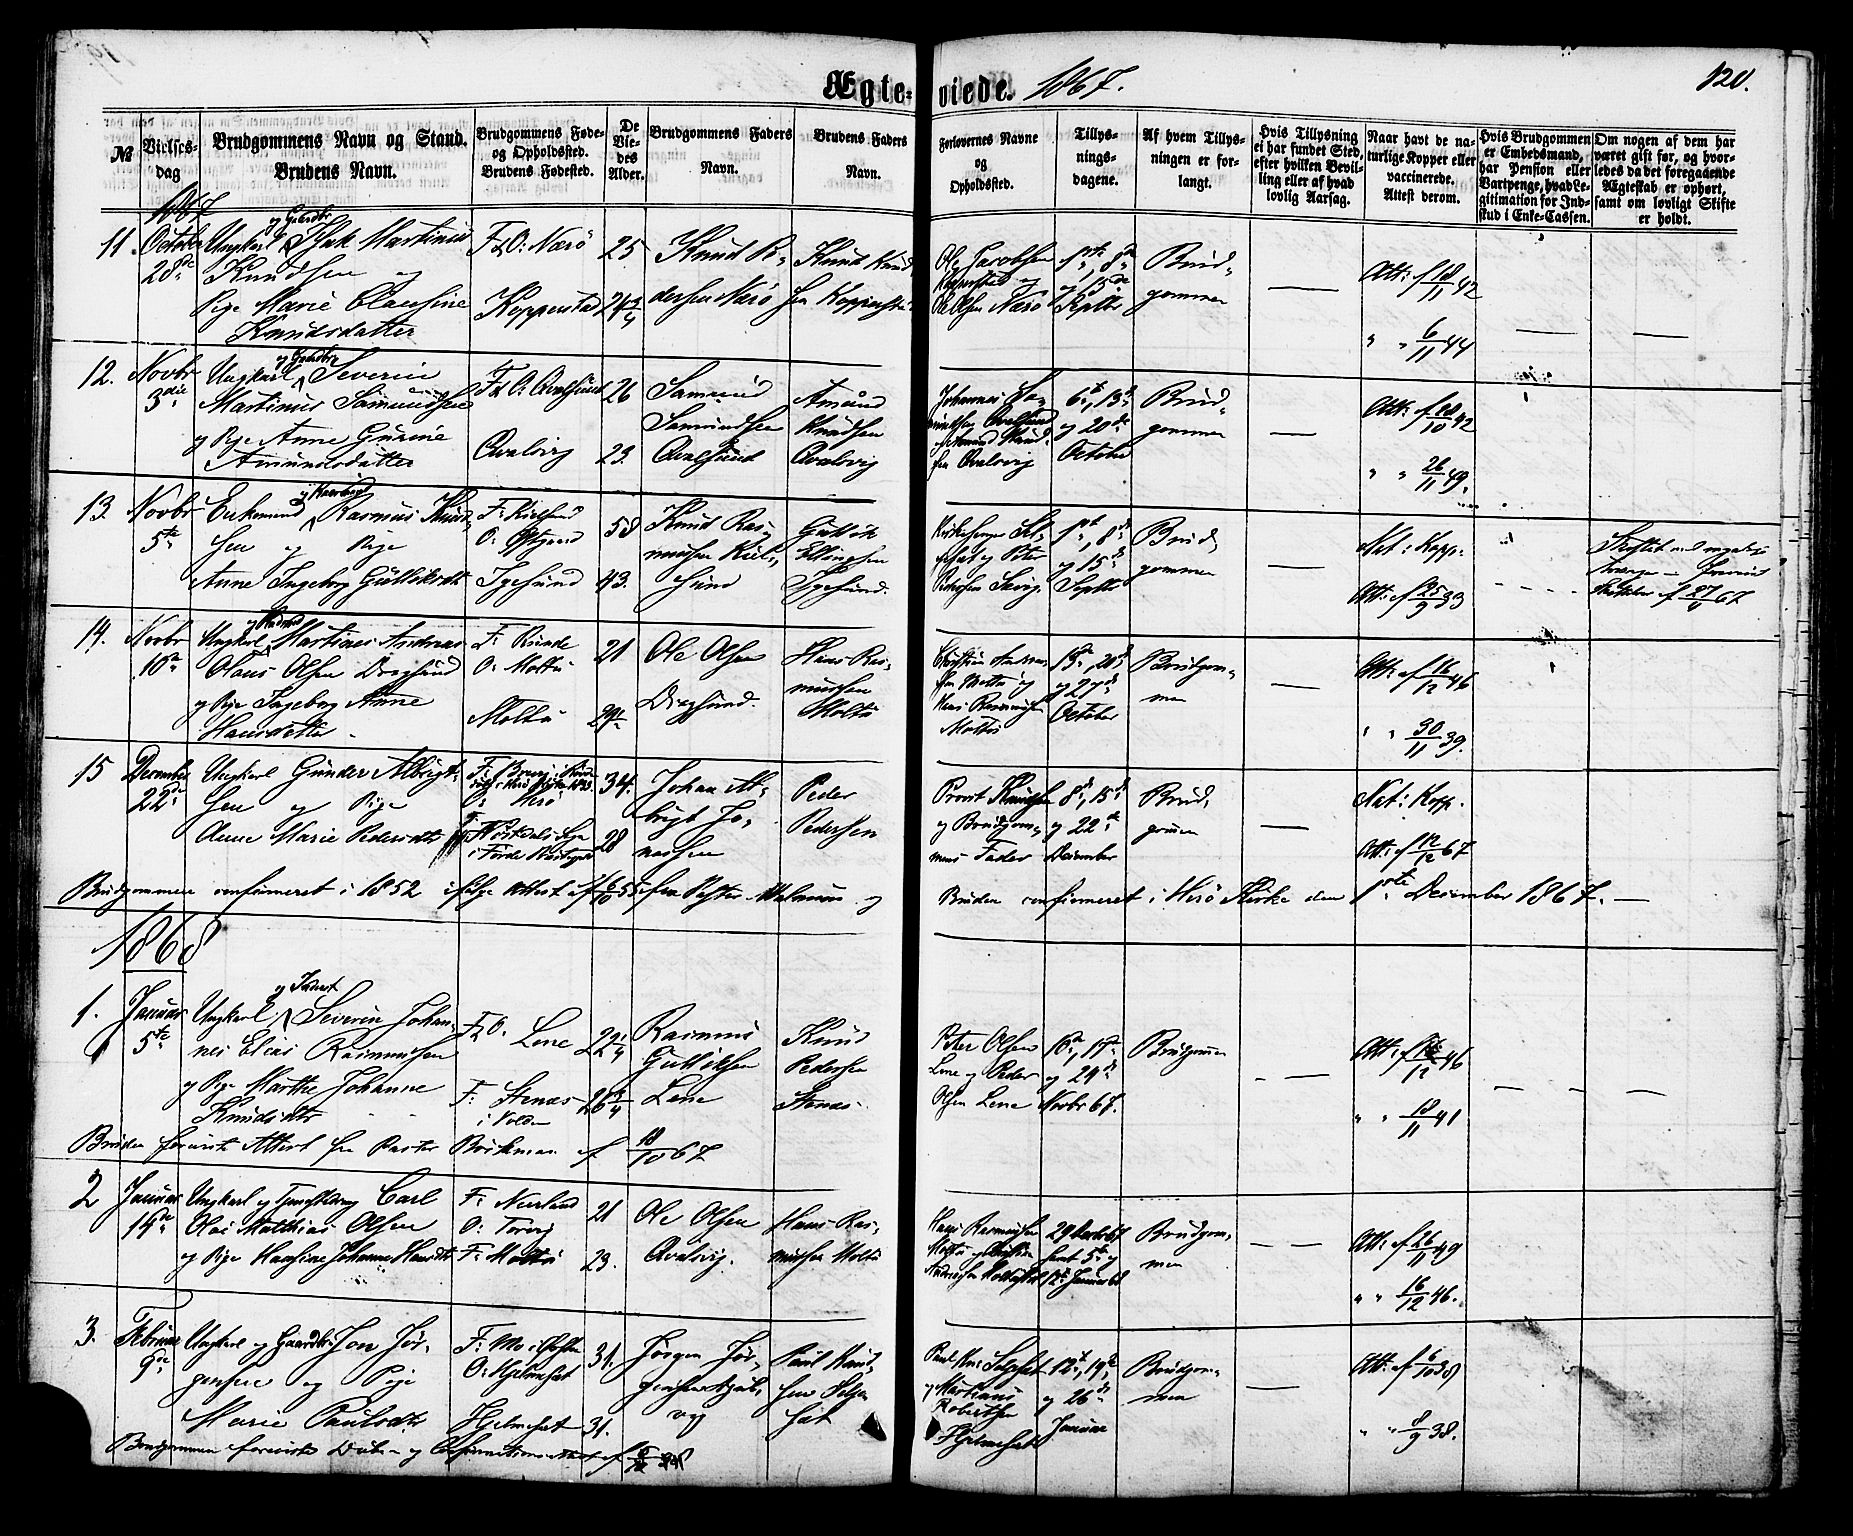 Ægte- viede. 1867.
120.
№
Vielses-
dag
Brudgommens Navn og Stand.
Brudens Navn.
Brudgommens Føde-
og Opholdssted.
Brudens Fødested.
De
Vie-
des
Alder.
Brudgommens Faders
Navn.
Brudens Faders
Navn.
Forlovernes Navne
og
Opholdssted.
Tillys-
nings-
dagene.
Af hvem Tillys-
ningen er for-
langt.
Hvis Tillysning
ei har fundet Sted,
efter hvilken Bevil-
ling eller af hvad
lovlig Aarsag.
Naar havt de na-
turlige Kopper eller
vaccinerede.
Attest derom.
Hvis Brudgommen
er Embedsmand,
har Pension eller
Vartpenge, hvad Le-
gitimation for Ind-
skud i Enke-Cassen.
Om nogen af dem har
været gift før, og hvor-
ledes da det foregaaende
Ægteskab er ophørt,
samt om lovligt Skifte
er holdt.
1867
11. October 28de
Ungkarl og Gaardbr Isak Martinus
Knudsen og
Pige Marie Olausine
Knudsdatter
F. & O: Nærø
Kopperstad
25
24 3/4
Knud Pe-
dersen Nærø
Knud Knud-
sen Kopperstad
Ole Jacobsen
Kopperstad og
Ole Olsen Nærø
1ste, 8de
og 15de
Septbr
Brud-
gommen
Att: af 18/11 42
" " 6/11 44
12. Novbr 3die
Ungkarl og Gaardbr Severin
Martinus Samundsen
og Pige Anne Gurine
Amundsdatter
F. & O. Qvalsund
Qvalsvig
26
23.
Samund
Samundsen
Qvalsund
Amund
Knudsen
Qvalsvig
Johannes Sa-
mundsen Qvalsund
og Amund Knud-
sen Qvalsvig
6te, 13de
og 20de
October
Brud-
gommen
Att: af 28/10 42
" " 26/11 49.
13. Novbr 5te
Enkemand og Rasmus Knud-
sen og Pige
Anne Ingeborg Guttiksdtr
F:
O:
Igesund
58
43.
Knud Ras-
mussen Kiel-
sund
Guttik
Ellingsen
Igesund.
Kirkesanger
og Peter
1ste, 8de
og 15de
Septbr
Brud-
gommen
Nat: Kopp:
Att: af 25/9 33
Skiftet med
af 27/4 67
14. Novbr 10de
Ungkarl og Martines Andreas
Olaus Olsen Dragsund
og Pige Ingeborg Anne
Hansdatter
F: Runde
O: Moltu
Moltu
21
29
Ole Olsen
Dragsund.
Hans Ras-
mussen
Moltu
Christian
sen Moltu og
Hans Rasmussen
Moltu
13de, 20de
og 27de
October
Brudgom-
men
Att: af 16/12 46
" " 30/11 39.
15 December 22de
Ungkarl Gunder Albrigt-
sen og Pige
Anne Marie Pedersdtr
O: Herø
i Førde
34.
28
Johan Al-
brigt Jo-
nassen
Peder
Pedersen
Provst Knudsen
og Brudgom-
mens Fader
8de, 15de
og 22de
December
Brud-
gommen
Nat: Kopp.
Att: af 12/12 67
Brudgommen confirmeret i 1852 ifølge Attest af fra Pastor og
Bruden confirmeret i Herø Kirke den 1ste December 1867.
1868
1. Januar 5te
Ungkarl og Severin Johan-
nes Elias Rasmussen
og Pige Marthe Johanne
Knudsdtr
F. & O: Lene
F: Stenæs
i Volden
22 1/4
26 3/4
Rasmus
Guttiksen
Lene
Knud
Pedersen
Stenæs
Peter Olsen
Lene og Peder
Olsen Lene
10de, 17de
og 24de
Novbr 67.
Brudgommen
Att: af 16/12 46
" " 18/11 41
Bruden foreviste Attest fra Pastor af 18/10 67
2 Januar 14de
Ungkarl og Carl
Olai Matthias Olsen
og Pige Hansine Johanne Hansdtr
F: Nærland
O: Torvig
F: Moltu
21
23.
Ole Olsen
Qvalsvig.
Hans Ras-
mussen Moltu
Hans Rasmussen
Moltu og
29 Decbr 67
samt 5te og
12te Januar 68
Brudgom-
men
Att: af 26/11 49
" " 16/12 46.
3. Februar 9de
Ungkarl og Gaardbr: Jon Jør-
gensen og Pige
Marie Paulsdtr
F: Mo i
O: Hjelmeset
Hjelmeset
31.
31.
Jørgen Jør-
gensen
Paul Knud-
sen Hjelme-
set
Paul Kn:
og Martinus
Robertsen
Hjelmeset
12te, 19de
og 26de
Januar
Brudgom-
men
Att: af 6/10 38
" " 8/9 38.
Brudgommen foreviste Daabs- og Confirmations-Attest af